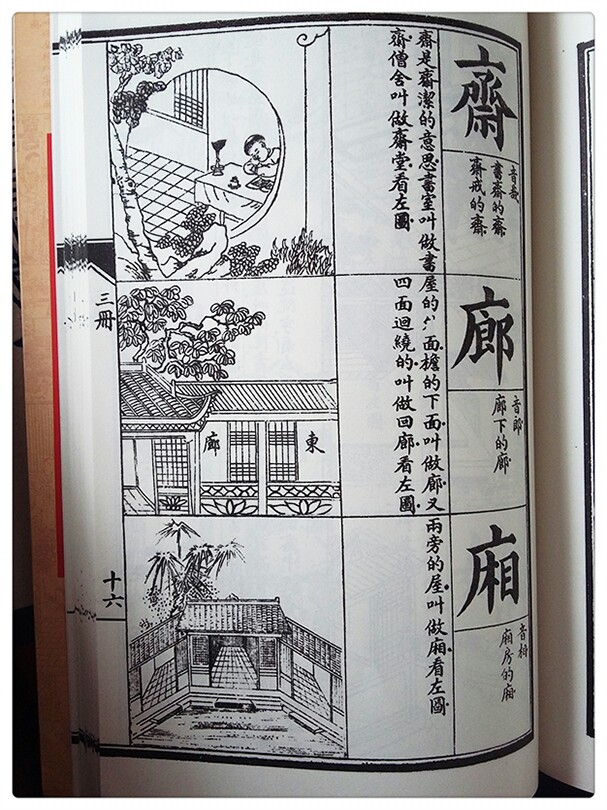 齋
音
書齋的齋
齋戒的齋
齋是齋潔的意思書室叫做書
齋僧舍叫做齋堂看左圖
廊
音郎
廊下的廊
屋的面檐的下面叫做廊又
四面迴繞的叫做回廊看左圖
東廊
廂
音相
廂房的廂
兩旁的屋叫做廂看左圖
三冊
十六